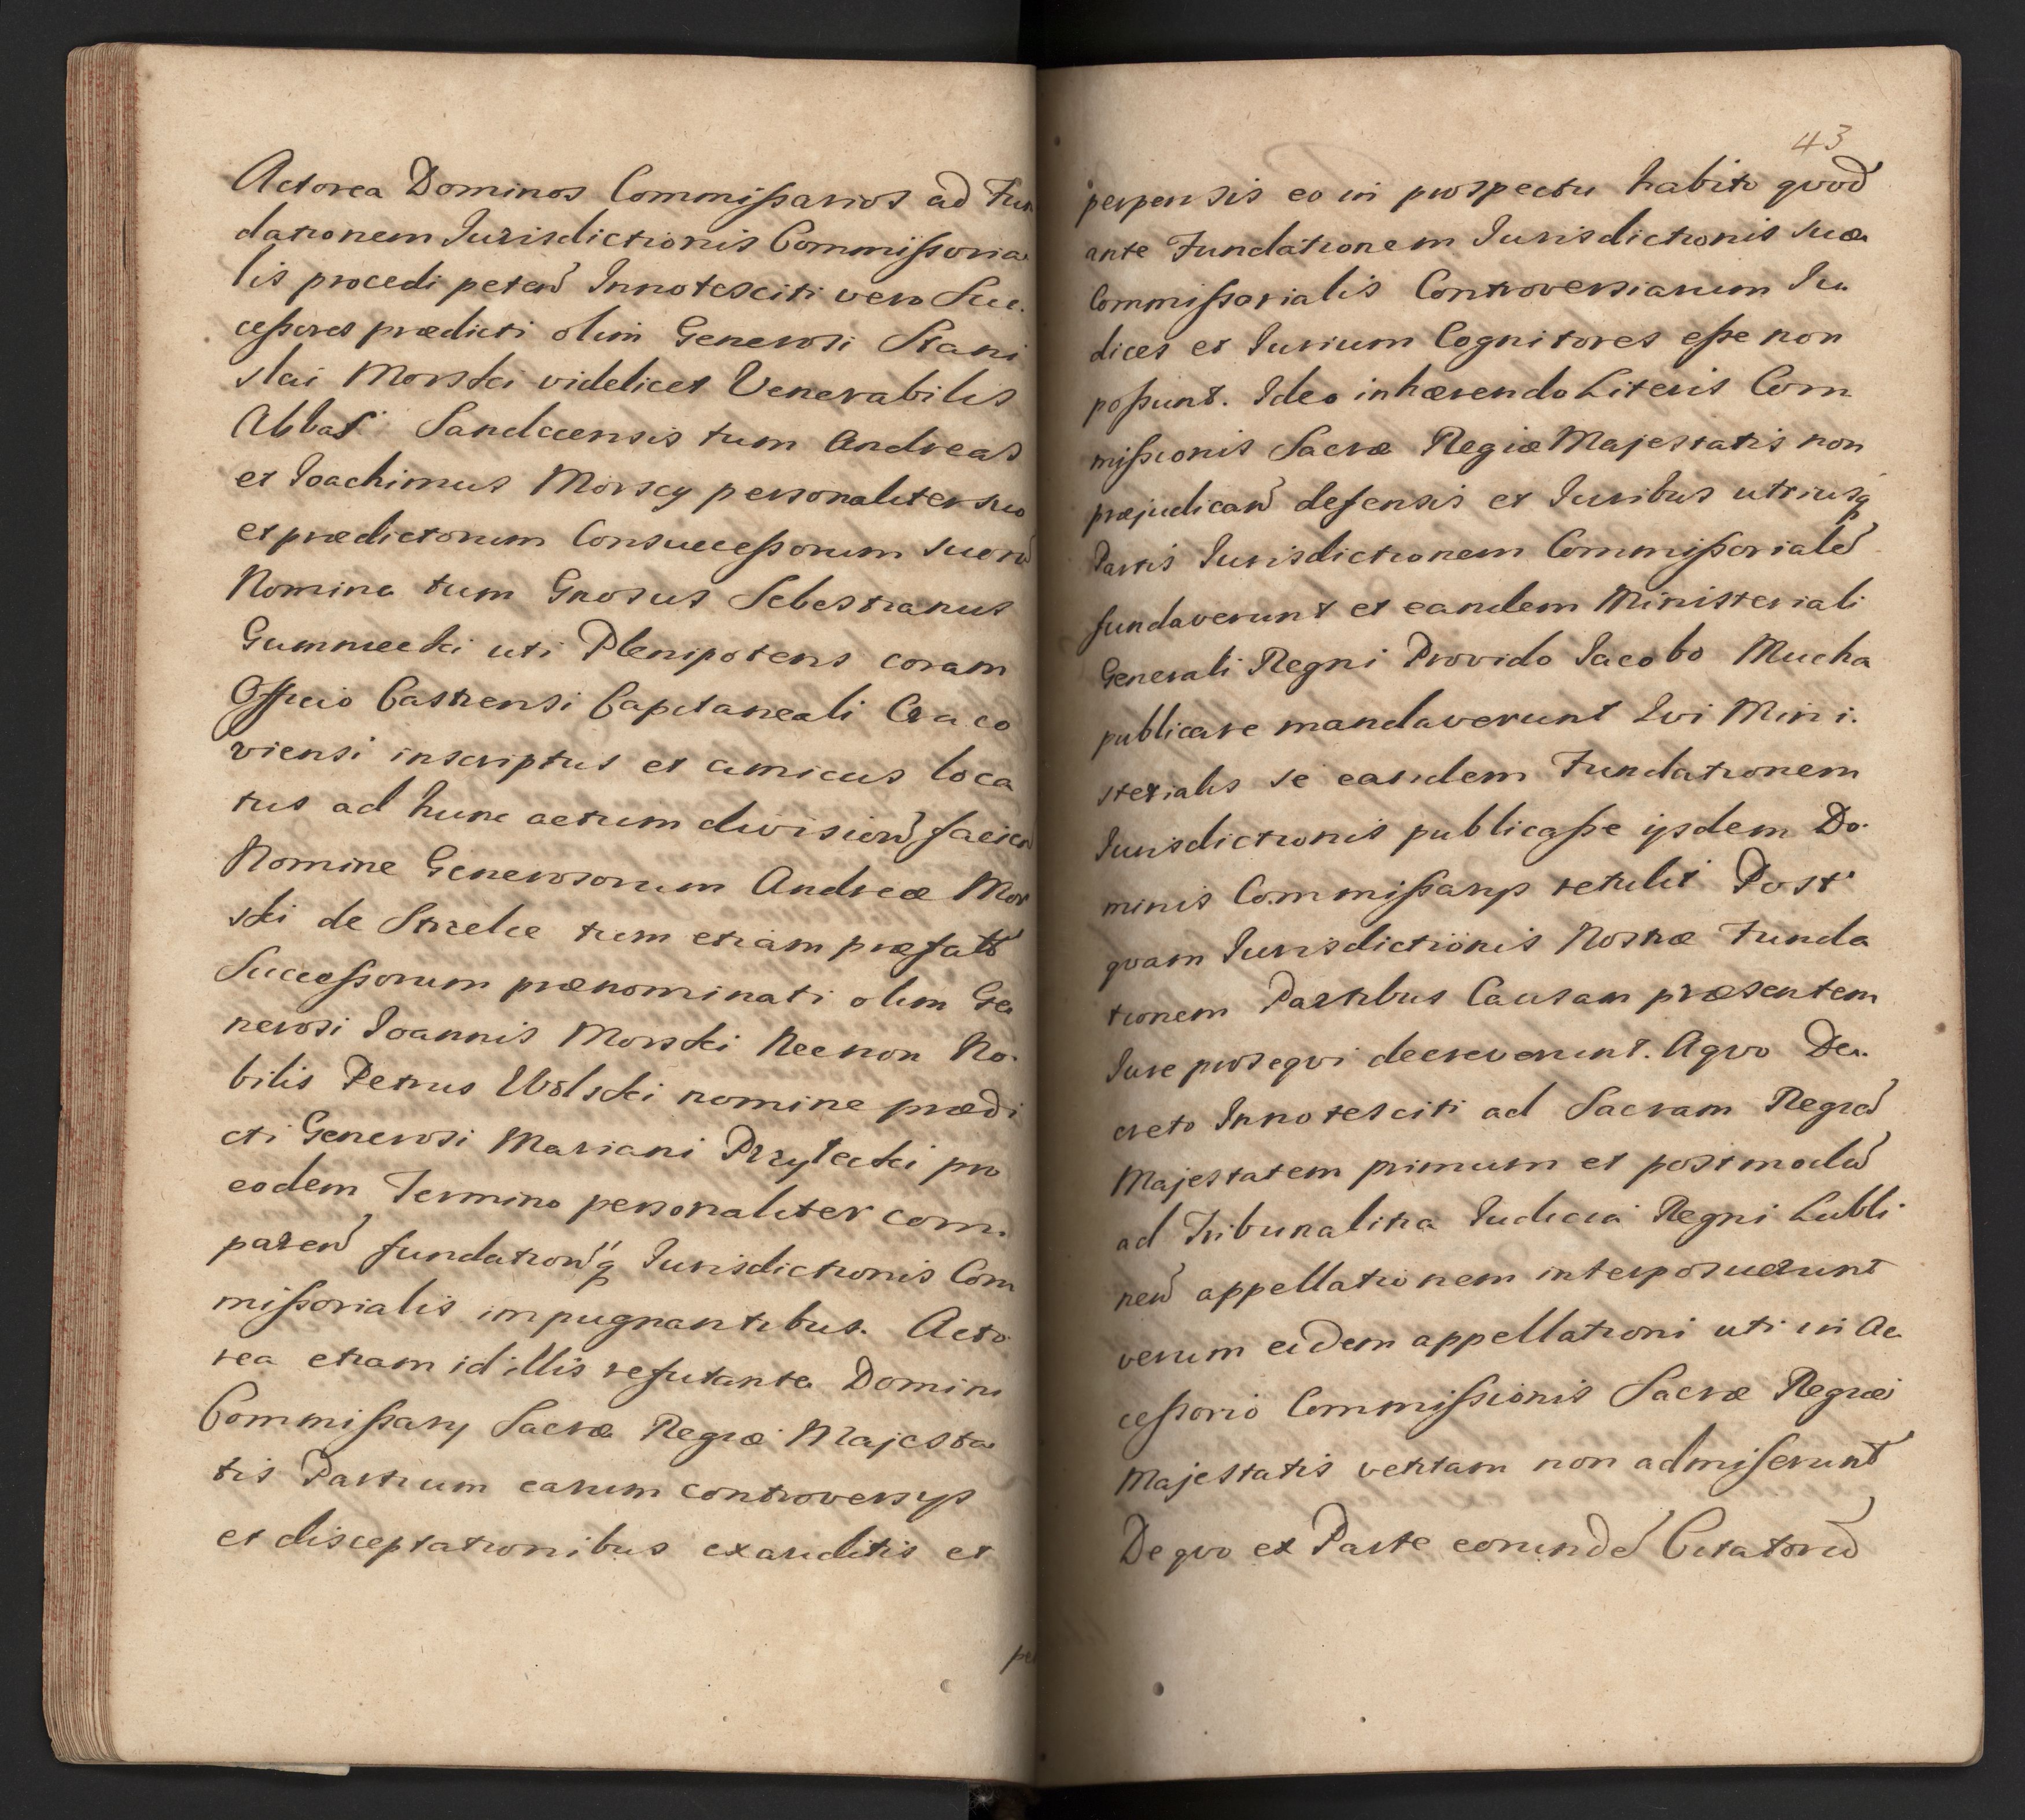 Actorea Dominos Commißarios ad Fun
dationem Iurisdictionis Commißoria
lis procedi peteñ Innotesciti vero Suc.
ceßores prædicti olim Generosi Stani
slai Morski videlicet Venerabilis
Abbas Sandecensis tum Andreas
et Ioachimus Morscy personaliter suo
et prædictorum Consuccessorum suorũ
Nomina tum Gnosus Sebestianus
Gummecki uti Plenipotens coram
Officio Castrensi Capitaneali Craco
viensi inscriptus et amicus loca
tus ad hunc actum divisioñ faciẽ
Nomine Generosorum Andreæ Mor
ski de Strzelce tum etiam præfatõ
Succeßorum prænominati olim Ge
nerosi Ioannis Morski Necnon No.
bilis Petrus Wolski nomine prædi
cti Generosi Mariani Przyłecki pro
eodem Termino personaliter com.
pareñ fundationq̃ Iurisdictionis Com
mißorialis impugnantibus. Acto
rea etiam id illis refutante Domini
Commißarij Sacræ Regiæ Majesta
tis Partium earum controversijs
et disceptationibus exauditis et
pe
43
perpensis eo in prospectu habito qvod
ante Fundationem Iurisdictionis suæ
Commißorialis Controversiarum Iu
dices et Iurium Cognitores eße non
poßunt. Ideo inhærendo Literis Com
mißionis Sacræ Regiæ Majestatis non
præjudicañ defensis et Iuribus utriusq̃
Partis Iurisdictionem Commißorialẽ
fundaverunt et eandem Ministeriali
Generali Regni Provido Iacobo Mucha
publicare mandaverunt Qvi Mini.
sterialis se eandem Fundationem
Iurisdictionis publicaße ijsdem Do.
minis Commißarijs retulit Post
qvam Iurisdictionis Nostræ Funda
tionem Partibus Causam præsentem
Iure proseqvi decreverunt. A qvo De.
creto Innotesciti ad Sacram Regiã
Majestatem primum et postmodũ
ad Tribunalitia Iudicia Regni Lubli
neñ appellationem interposuerunt
verum eidem appellationi uti in Ac
ceßorio Commißionis Sacræ Regiæ
Majestatis vetitam non admiserunt
De qvo ex Parte eorundẽ Citatorũ